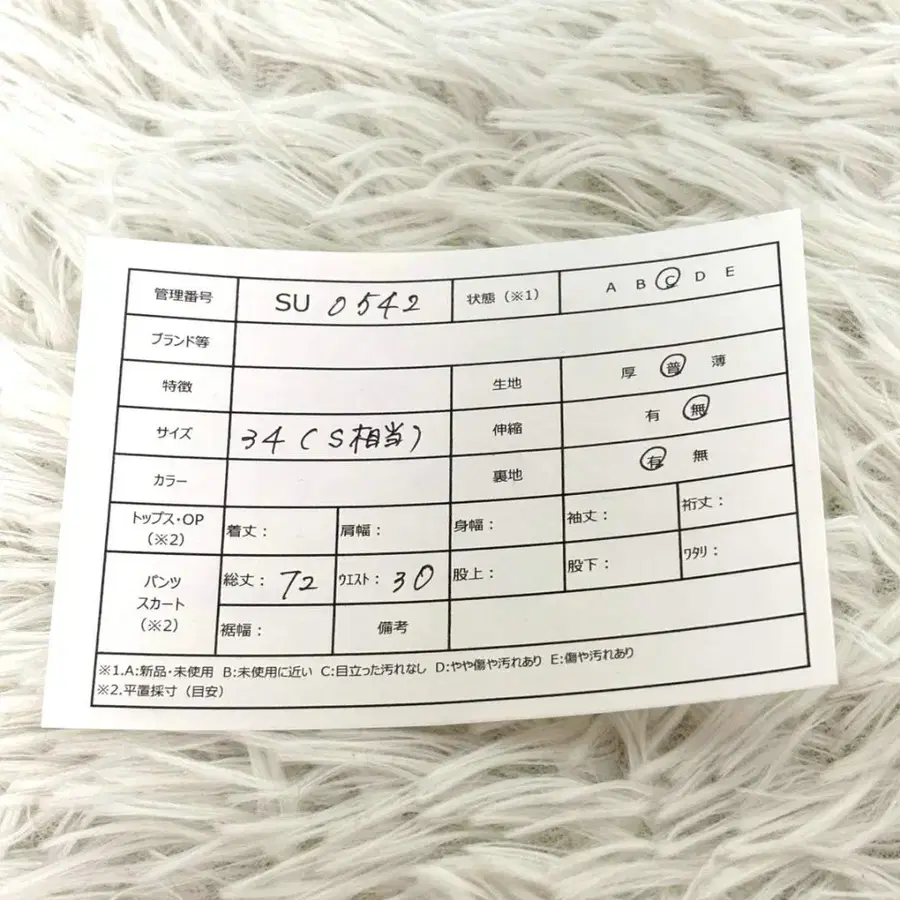 管理番号 SU 0542 状態(※1) A B C D E
ブランド等
特徴 生地 厚 普 薄
サイズ 34(S相当) 伸縮 有 無
カラー 裏地 有 無
トップス・OP (※2) 着丈: 肩幅: 身幅: 袖丈: 裄丈:
パンツ スカート (※2) 総丈: 72 ウエスト: 30 股上: 股下: ワタリ:
裾幅: 備考
※1.A:新品・未使用 B:未使用に近い C:目立った汚れなし D:やや傷や汚れあり E:傷や汚れあり
※2.平置採寸(目安)